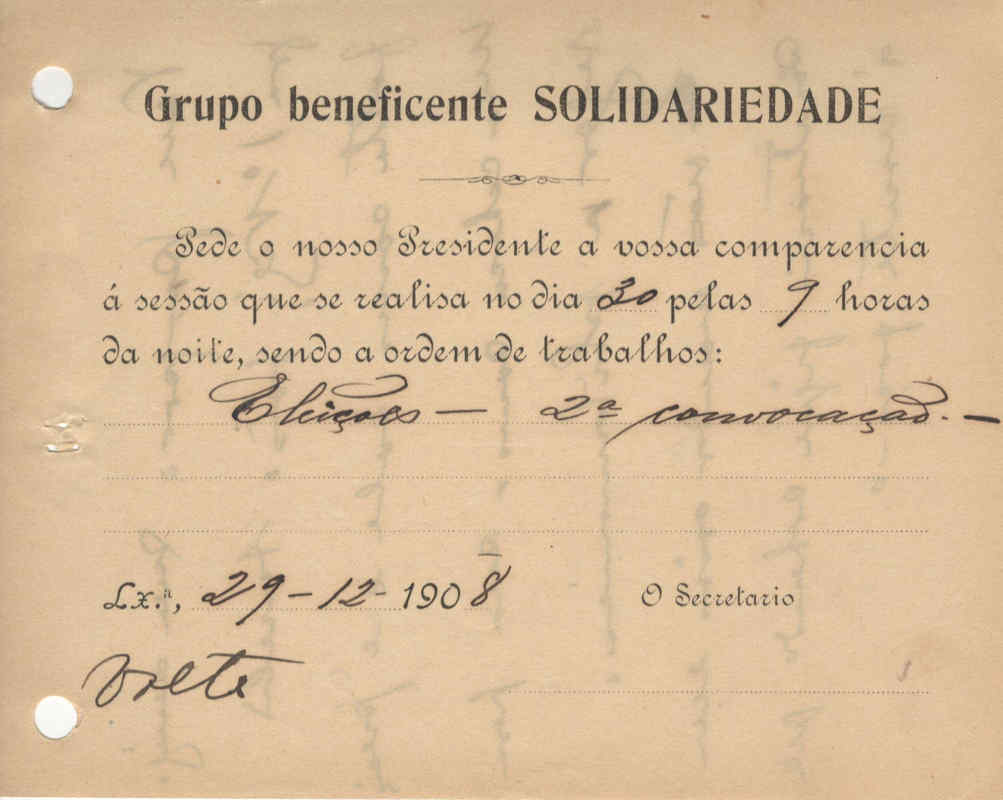 Grupo beneficente SOLIDARIEDADE
Pede o nosso Presidente a vossa comparencia
á sessão que se realisa no dia 30 pelas 9 horas
da noite, sendo a ordem de trabalhos:
Eleições — 2ª convocação. —
Lx.ª, 29-12-1908 O Secretario
Volte